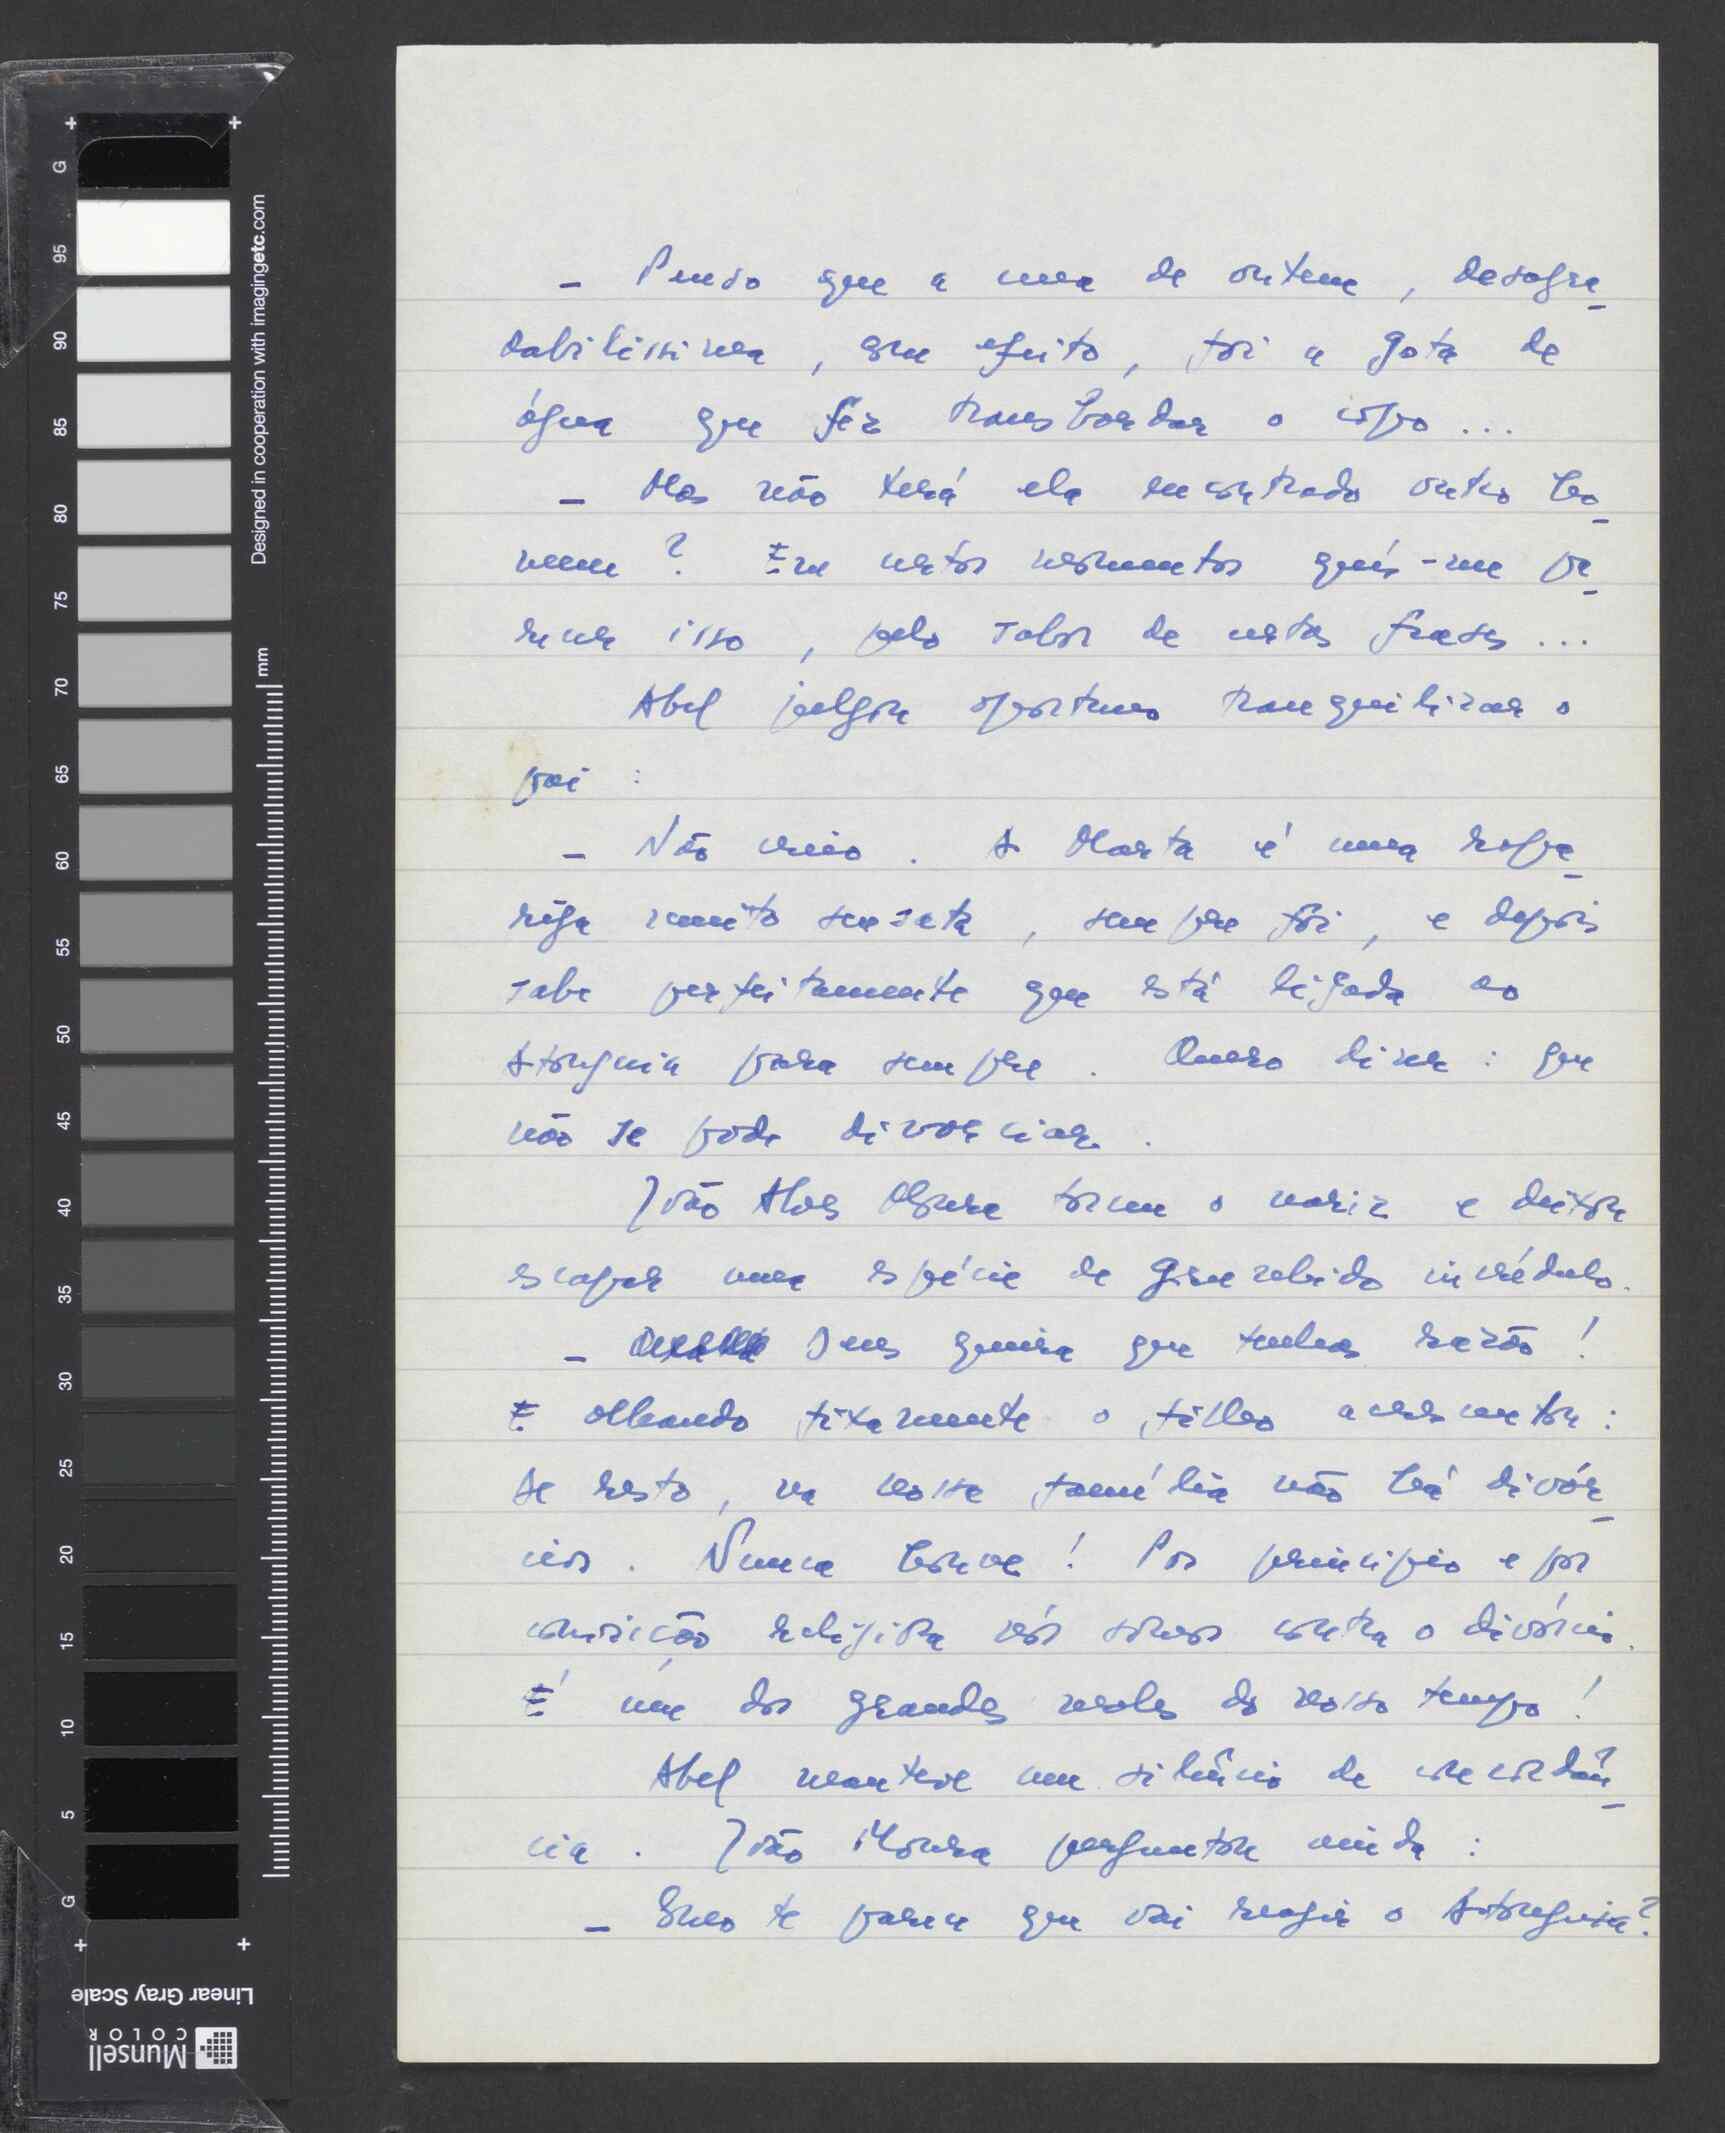 - Penso que a cena de ontem, desagra-
dabilíssima, sem efeito, foi a gota de
água que fez transbordar o copo...
- Mas não terá ela encontrado outro ho-
mem? Em certos momentos quis-me pa-
recer isso, pelo tabor de certas frases...
Abel julgou oportuno tranquilizar o
pai:
- Não creio. A Marta é uma rapa-
riga muito sensata, sempre foi, e depois
sabe perfeitamente que está ligada ao
para sempre. Quero dizer: que
não se pode divorciar.
João Alves Moura torceu o nariz e deixou
escapar uma espécie de grunhido incrédulo.
- Deus queira que tenhas razão!
E olhando fixamente o filho acrescentou:
de resto, na nossa família não há divór-
cios. Nunca houve! Por princípio e por
convicção religiosa nós somos contra o divórcio.
É um dos grandes males do nosso tempo!
Abel manteve um silêncio de concordân-
cia. João Moura perguntou ainda:
- Como te parece que vai reagir o
Designed in cooperation with imagingetc.com
mm
G
95
90
85
80
75
70
65
60
55
50
45
40
35
30
25
20
15
10
5
G
Linear Gray Scale
Munsell
COLOR